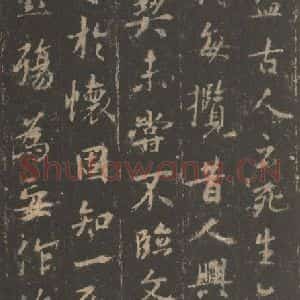 盡古人云死生
每攬昔人興
契未嘗不臨文
於懷固知一死
殤為妄作
Shufawang.CN